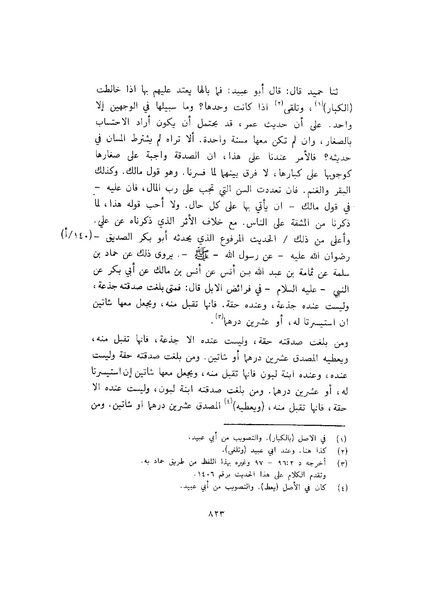 ثنا حميد قال: قال أبو عبيد: فما بالها يعتد عليهم بها اذا خالطت
(الكبار)(١)، وتلقى(٢) اذا كانت وحدها؟ وما سبيلها في الوجهين إلا
واحد. على أن حديث عمر، قد يحتمل أن يكون أراد الاحتساب
بالصغار، وان لم تكن معها مسنة واحدة. ألا تراه لم يشترط المسان في
حديثه؟ فالأمر عندنا على هذا، ان الصدقة واجبة على صغارها
كوجوبها على كبارها، لا فرق بينهما لما فسرنا. وهو قول مالك. وكذلك
البقر والغنم. فان تعددت السن التي تجب على رب المال، فان عليه –
في قول مالك – ان يأتي بها على كل حال. ولا أحب قوله هذا، لما
ذكرنا من المشقة على الناس. مع خلاف الأثر الذي ذكرناه عن علي.
وأعلى من ذلك / الحديث المرفوع الذي يحدثه أبو بكر الصديق – (١٤٠/أ)
رضوان الله عليه – عن رسول الله – ﷺ –. يروى ذلك عن حماد بن
سلمة عن ثمامة بن عبد الله بن أنس عن أنس بن مالك عن أبي بكر عن
النبي – عليه السلام – في فرائض الابل قال: فمتى بلغت صدقته جذعة،
وليست عنده جذعة، وعنده حقة. فانها تقبل منه، ويجعل معها شاتين
ان استيسرتا له، أو عشرين درهما(٣).
ومن بلغت صدقته حقة، وليست عنده الا جذعة، فانها تقبل منه،
ويعطيه المصدق عشرين درهما أو شاتين. ومن بلغت صدقته حقة وليست
عنده، وعنده ابنة لبون فانها تقبل منه، ويجعل معها شاتين إن استيسرتا
له، أو عشرين درهما. ومن بلغت صدقته ابنة لبون، وليست عنده الا
حقة، فانها تقبل منه، (ويعطيه)(٤) المصدق عشرين درهما او شاتين. ومن
(١) في الاصل (بالكبار). والتصويب من أبي عبيد.
(٢) كذا هنا. وعند ابي عبيد (وتلغى).
(٣) أخرجه د ٢: ٩٦ – ٩٧ وغيره بهذا اللفظ من طريق حماد به.
وتقدم الكلام على هذا الحديث برقم ١٤٠٦.
(٤) كان في الأصل (يعط). والتصويب من أبي عبيد.
٨٢٣